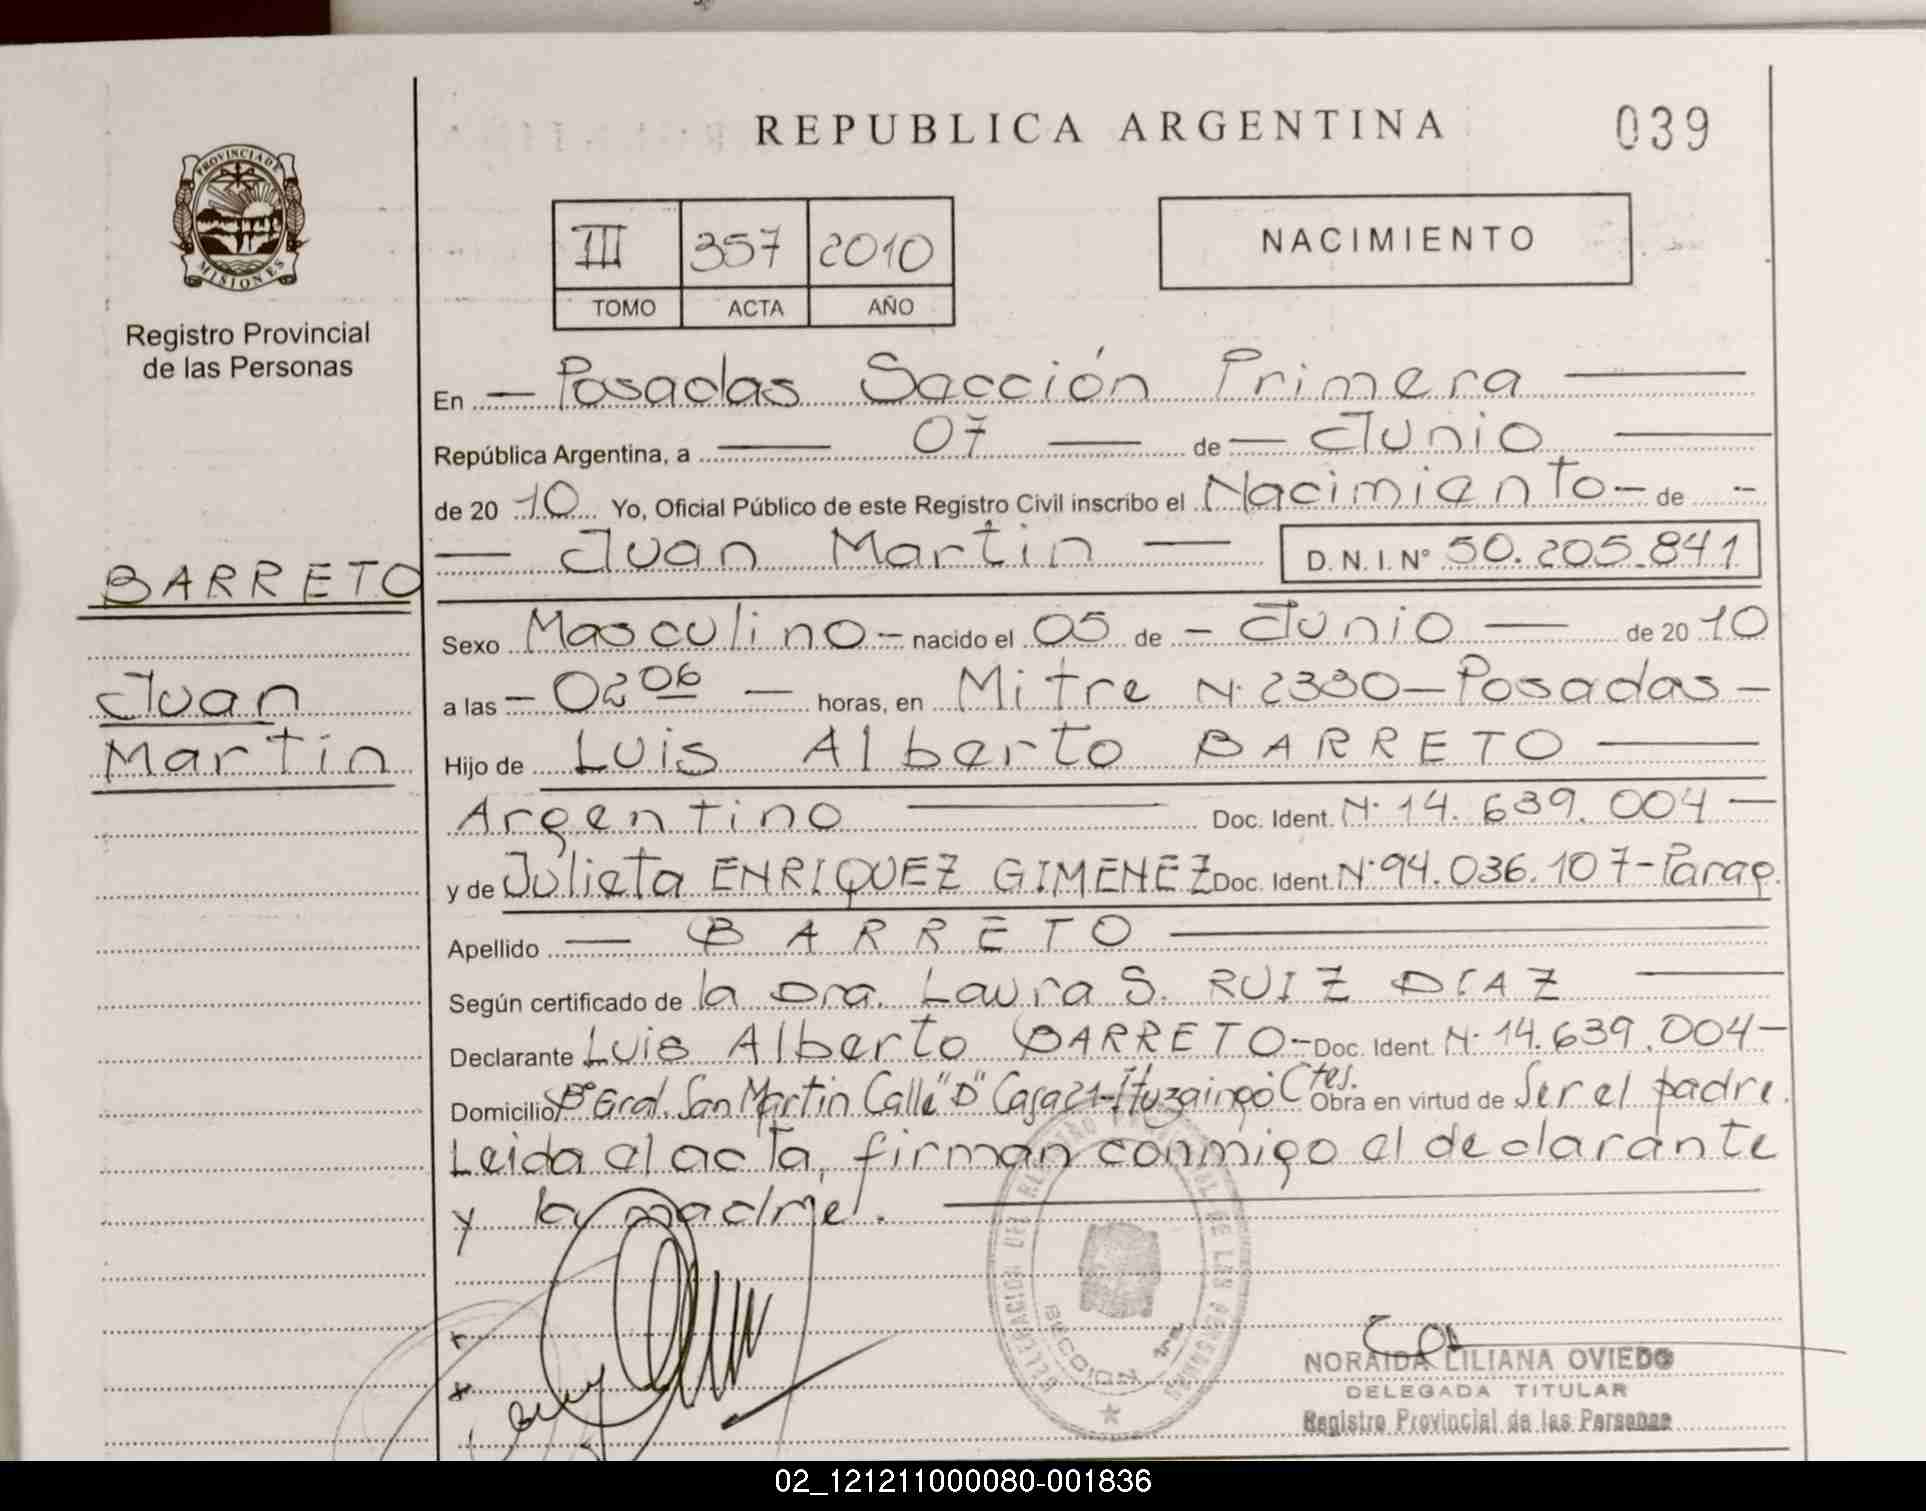 REPUBLICA ARGENTINA
039
PROVINCIA DE
MISIONES
Registro Provincial
de las Personas
III 357 2010
TOMO ACTA AÑO
NACIMIENTO
En — Posadas Sección Primera —
República Argentina, a — 07 — de — Junio —
de 20 10 Yo, Oficial Público de este Registro Civil inscribo el Nacimiento - de -
— Juan Martin — D. N. I. N° 50.205.841
BARRETO
Juan
Martin
Sexo Masculino - nacido el 05 de - Junio — de 20 10
a las - 02 06 — horas, en Mitre N. 2330 - Posadas -
Hijo de Luis Alberto BARRETO —
Argentino — Doc. Ident. N. 14.639.004 —
y de Julieta ENRIQUEZ GIMENEZ Doc. Ident. N. 94.036.107 - Parag.
Apellido — BARRETO —
Según certificado de la Dra. Laura S. RUIZ DÍAZ —
Declarante Luis Alberto BARRETO - Doc. Ident. N. 14.639.004 -
Domicilio B° Gral. San Martin Calle "D" Casa 21 - Ituzaingó Ctes. Obra en virtud de Ser el padre.
Leida el acta, firman conmigo el declarante
y la madre. —
DELEGACION DEL REGISTRO PROVINCIAL DE LAS PERSONAS
SECCION 1ra.
NORAIDA LILIANA OVIEDO
DELEGADA TITULAR
Registro Provincial de las Personas
02_121211000080-001836